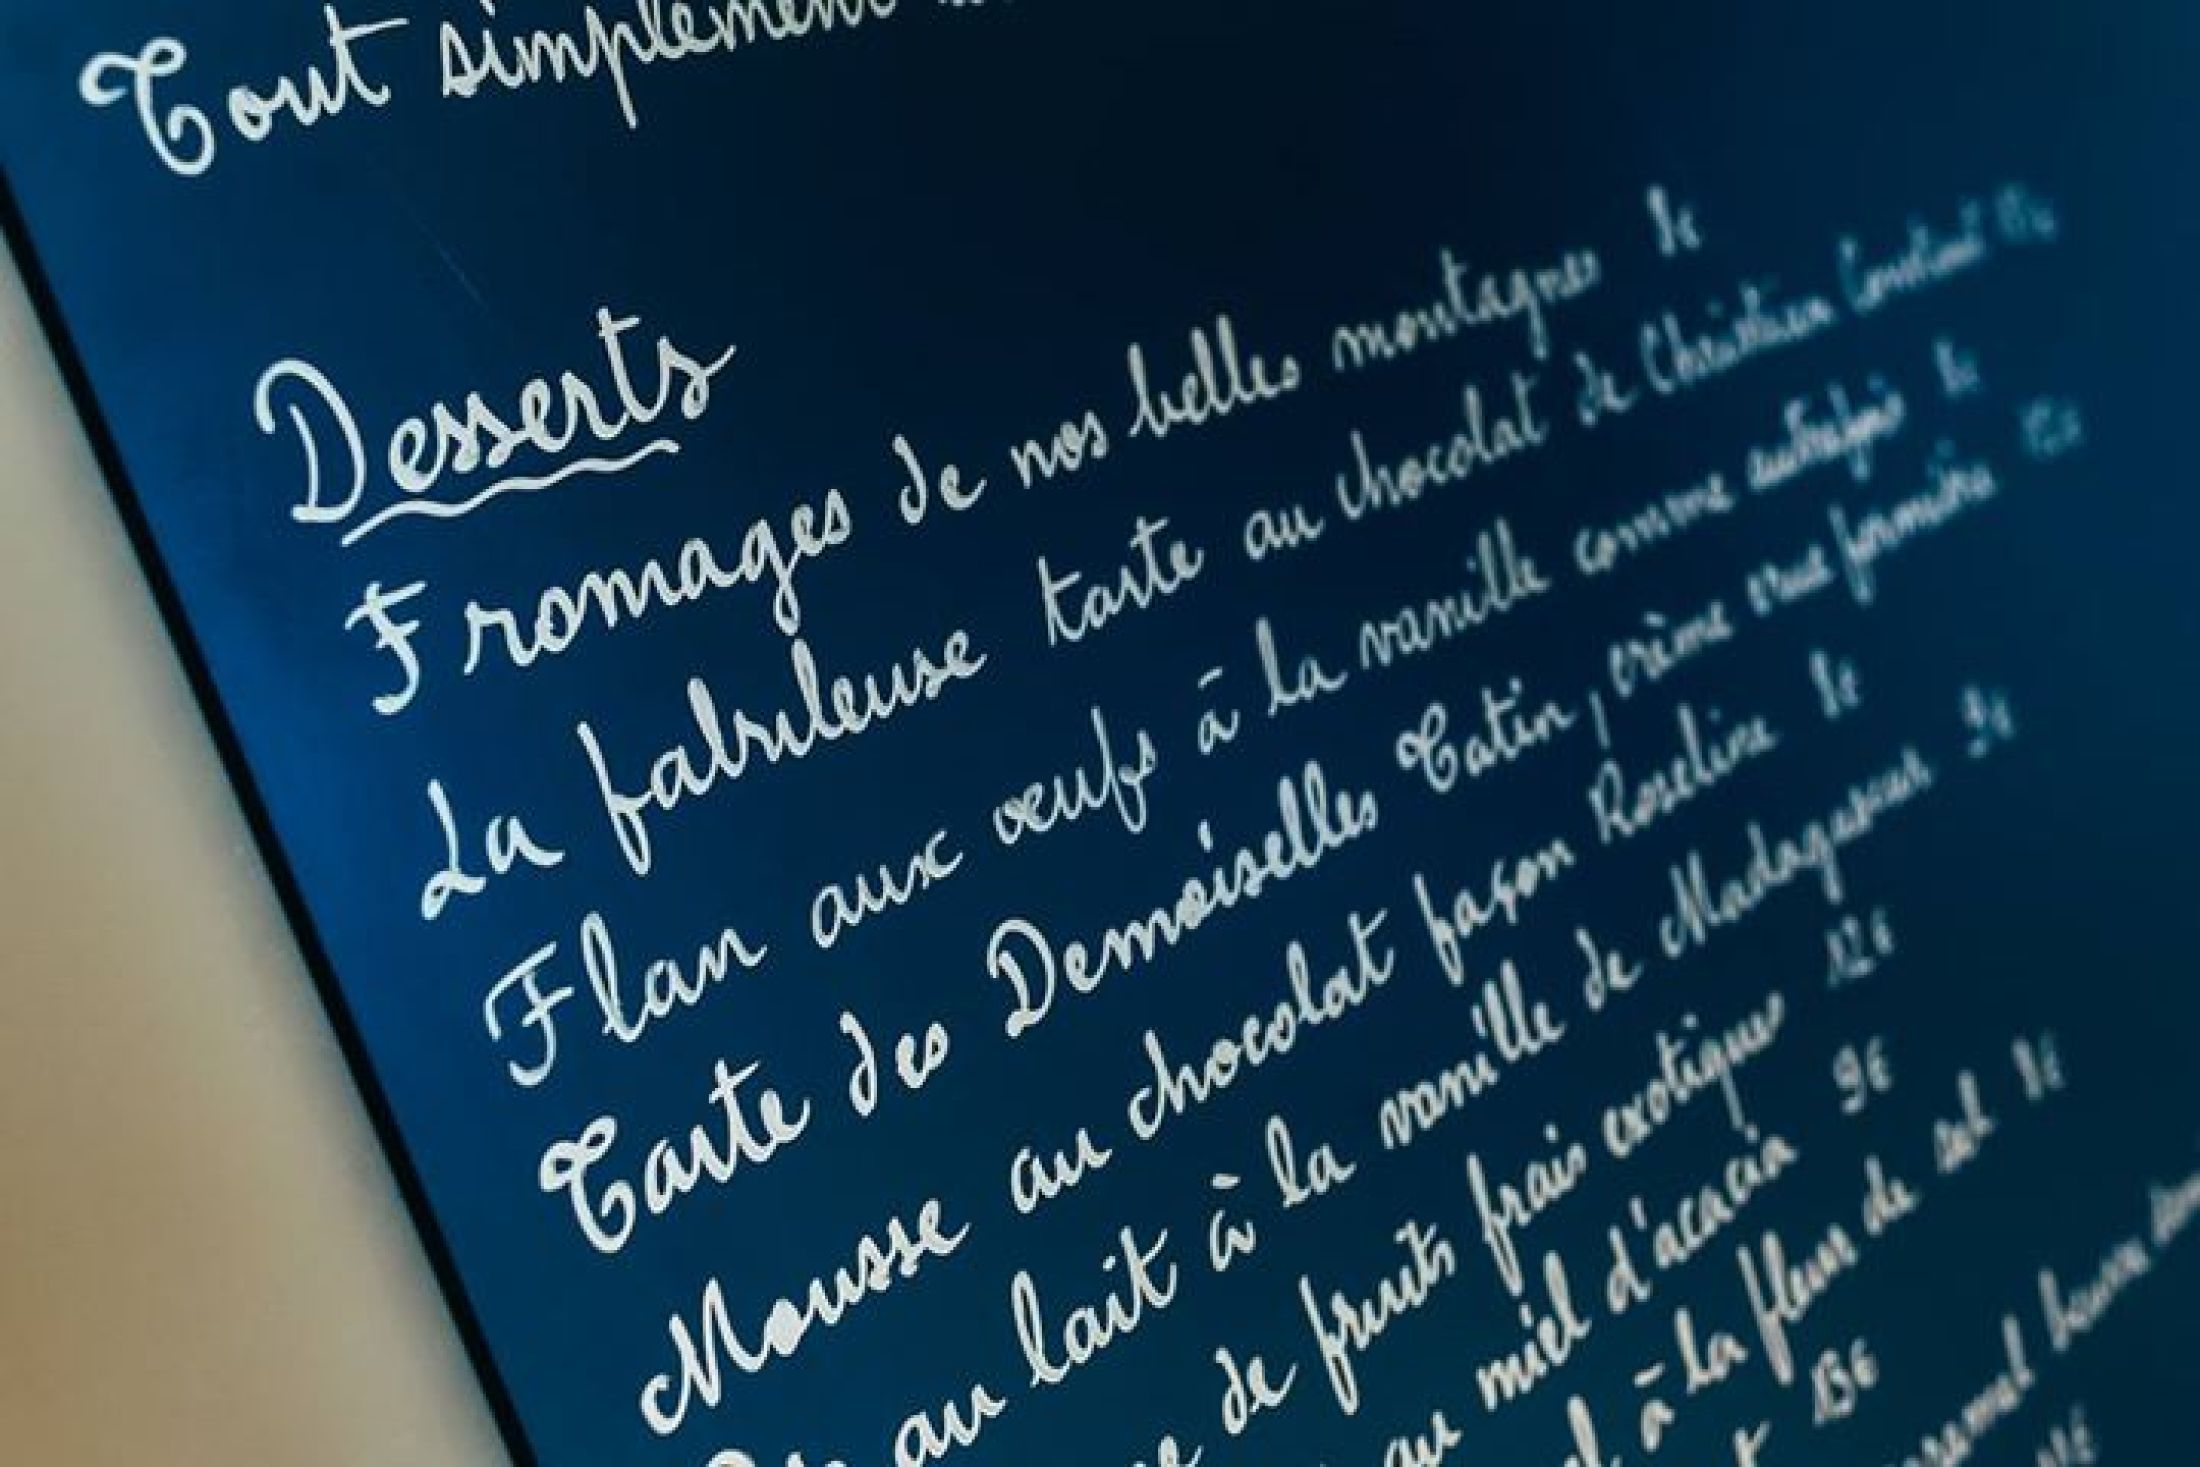 Tout simplement
Desserts
Fromages de nos belles montagnes 8€
La fabuleuse tarte au chocolat de Christian Constant
Flan aux œufs à la vanille comme autrefois 8€
Tarte des Demoiselles Tatin, crème crue fermière 12€
Mousse au chocolat façon Roseline 8€
au lait à la vanille de Madagascar 9€
de fruits frais exotiques 12€
au miel d'acacia 9€
à la fleur de sel 8€
13€
caramel beurre